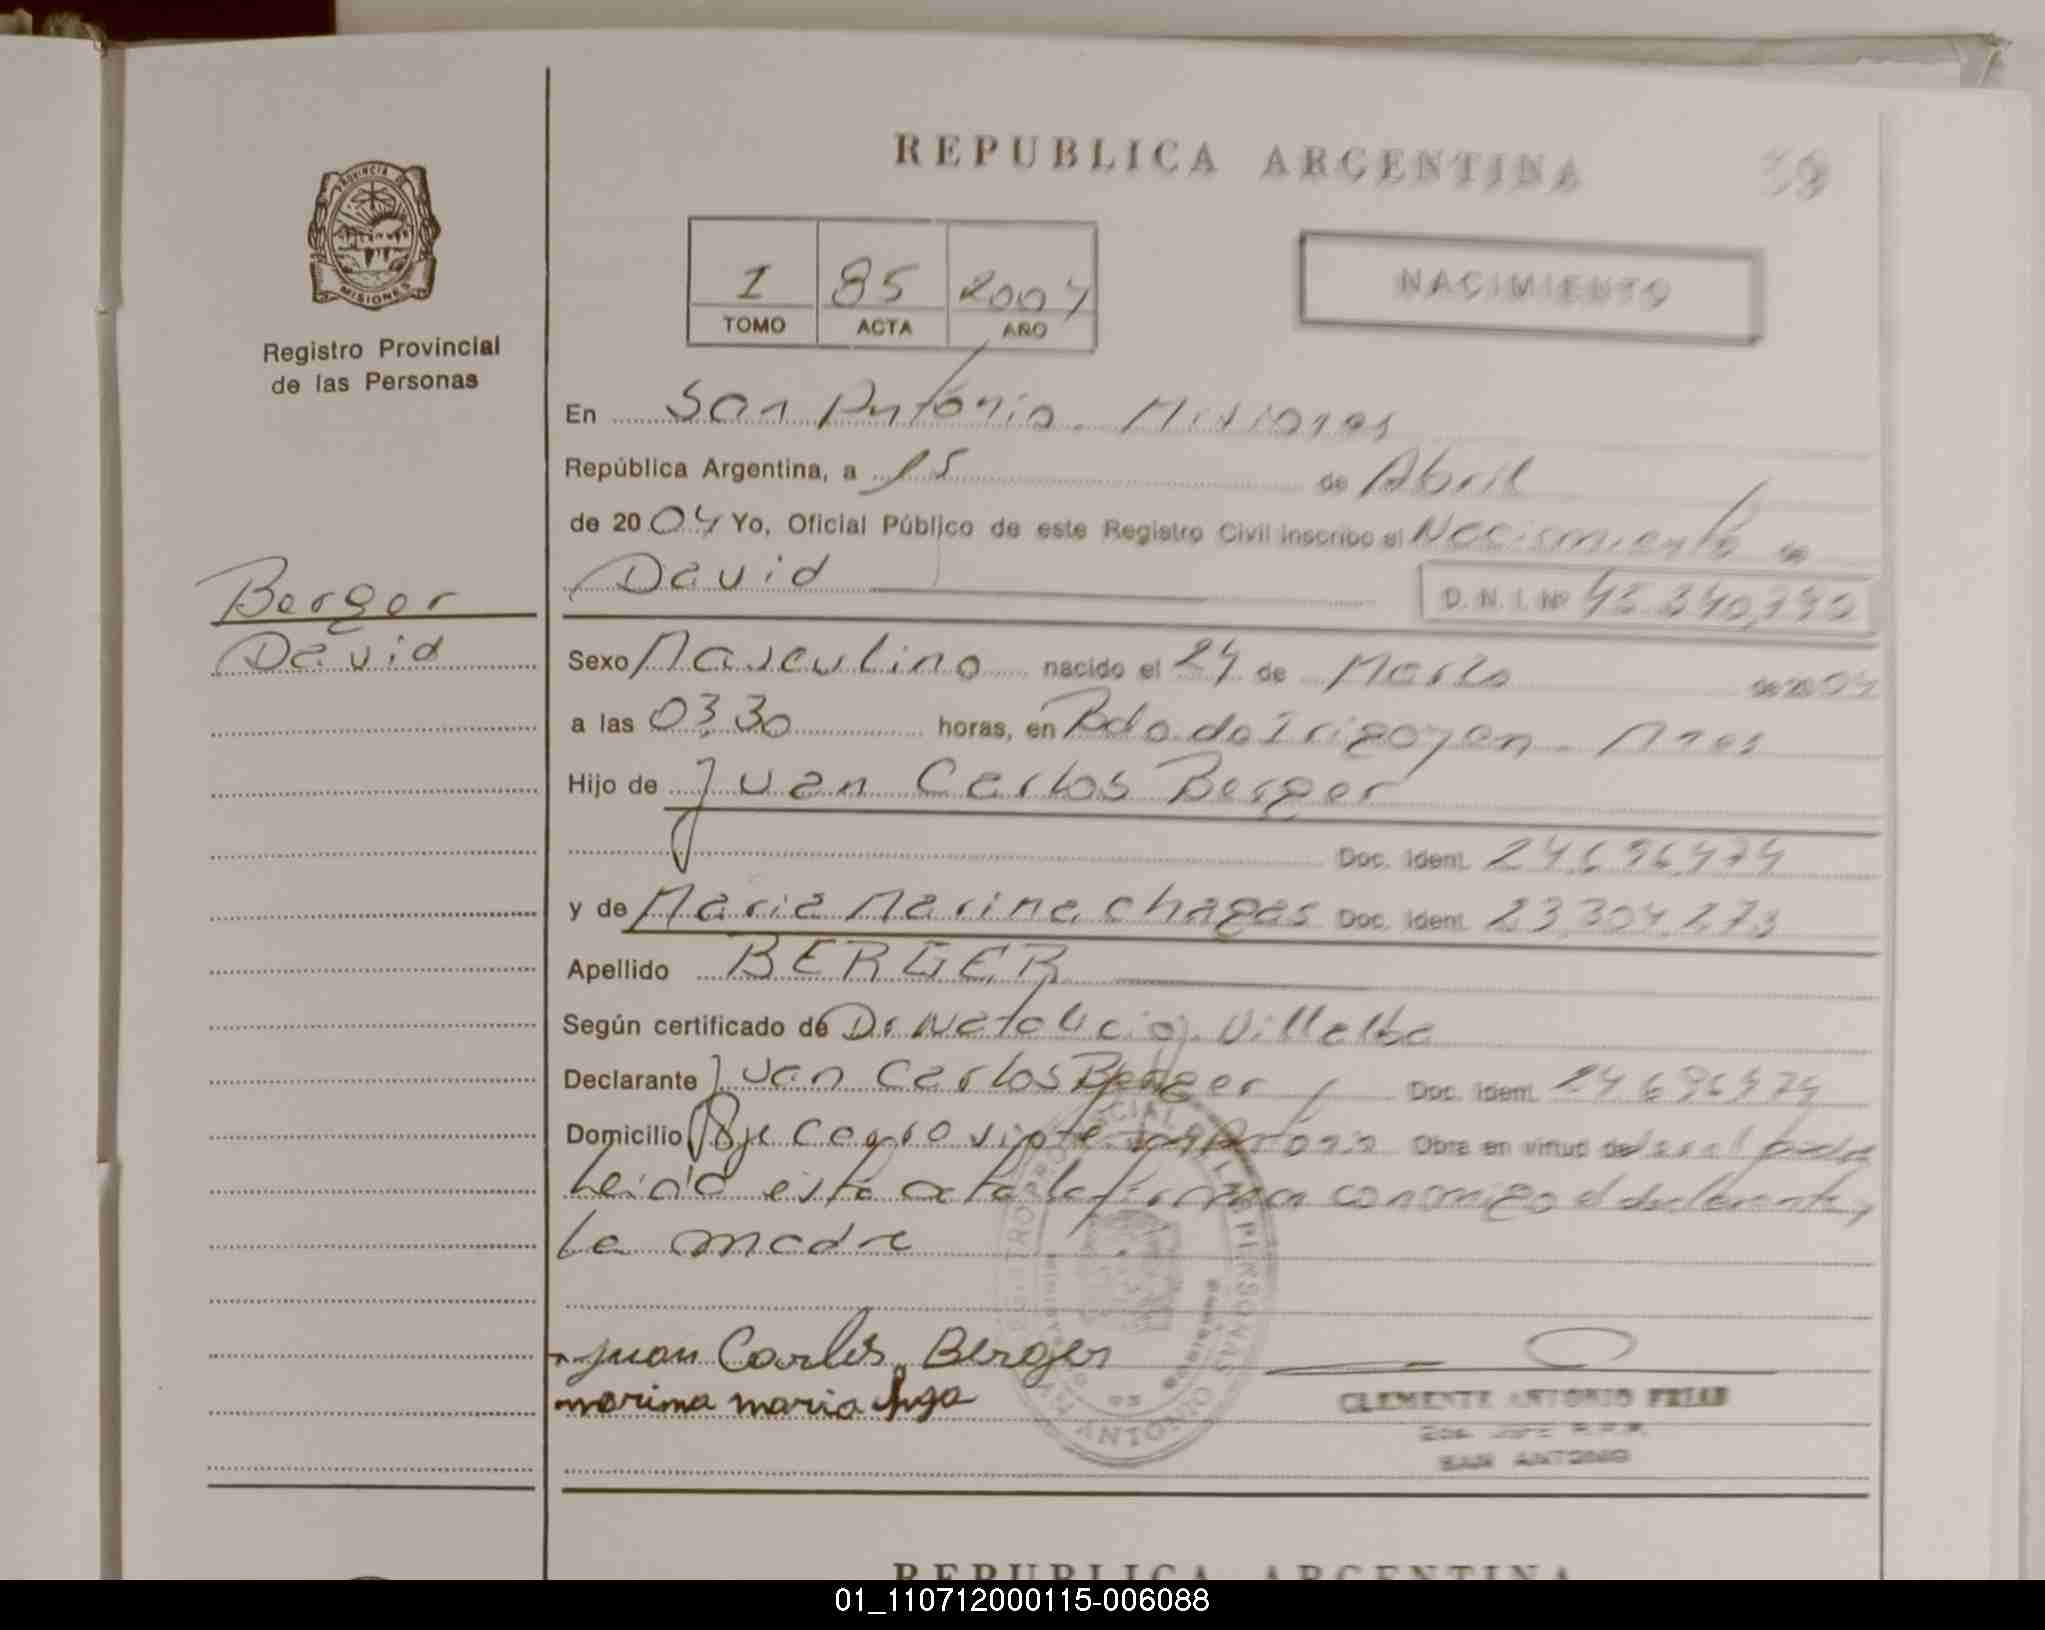 REPUBLICA ARGENTINA
39
PROVINCIA DE
MISIONES
Registro Provincial
de las Personas
I 85 2004
TOMO ACTA AÑO
NACIMIENTO
En San Antonio - Misiones
República Argentina, a 15 de Abril
de 2004 Yo, Oficial Público de este Registro Civil inscribo el Nacimiento de
David
D.N.I. Nº 45.340.740
Berger
David
Sexo Masculino nacido el 24 de Marzo de 2004
a las 03,30 horas, en Bdo. de Irigoyen - Mnes
Hijo de Juan Carlos Berger
Doc. Ident. 24.696.474
y de Maria Marina chagas Doc. Ident. 23.304.273
Apellido BERGER
Según certificado de Dr. Natalicio J. Villalba
Declarante Juan Carlos Berger Doc. Ident. 24.696474
Domicilio Pje San Antonio Obra en virtud de
Leida esta acta la firman conmigo el declarante y
la madre
Juan Carlos Berger
marima maria
CLEMENTE ANTONIO FRIAS
JEFE R.P.P.
SAN ANTONIO
REPUBLICA ARGENTINA
01_110712000115-006088